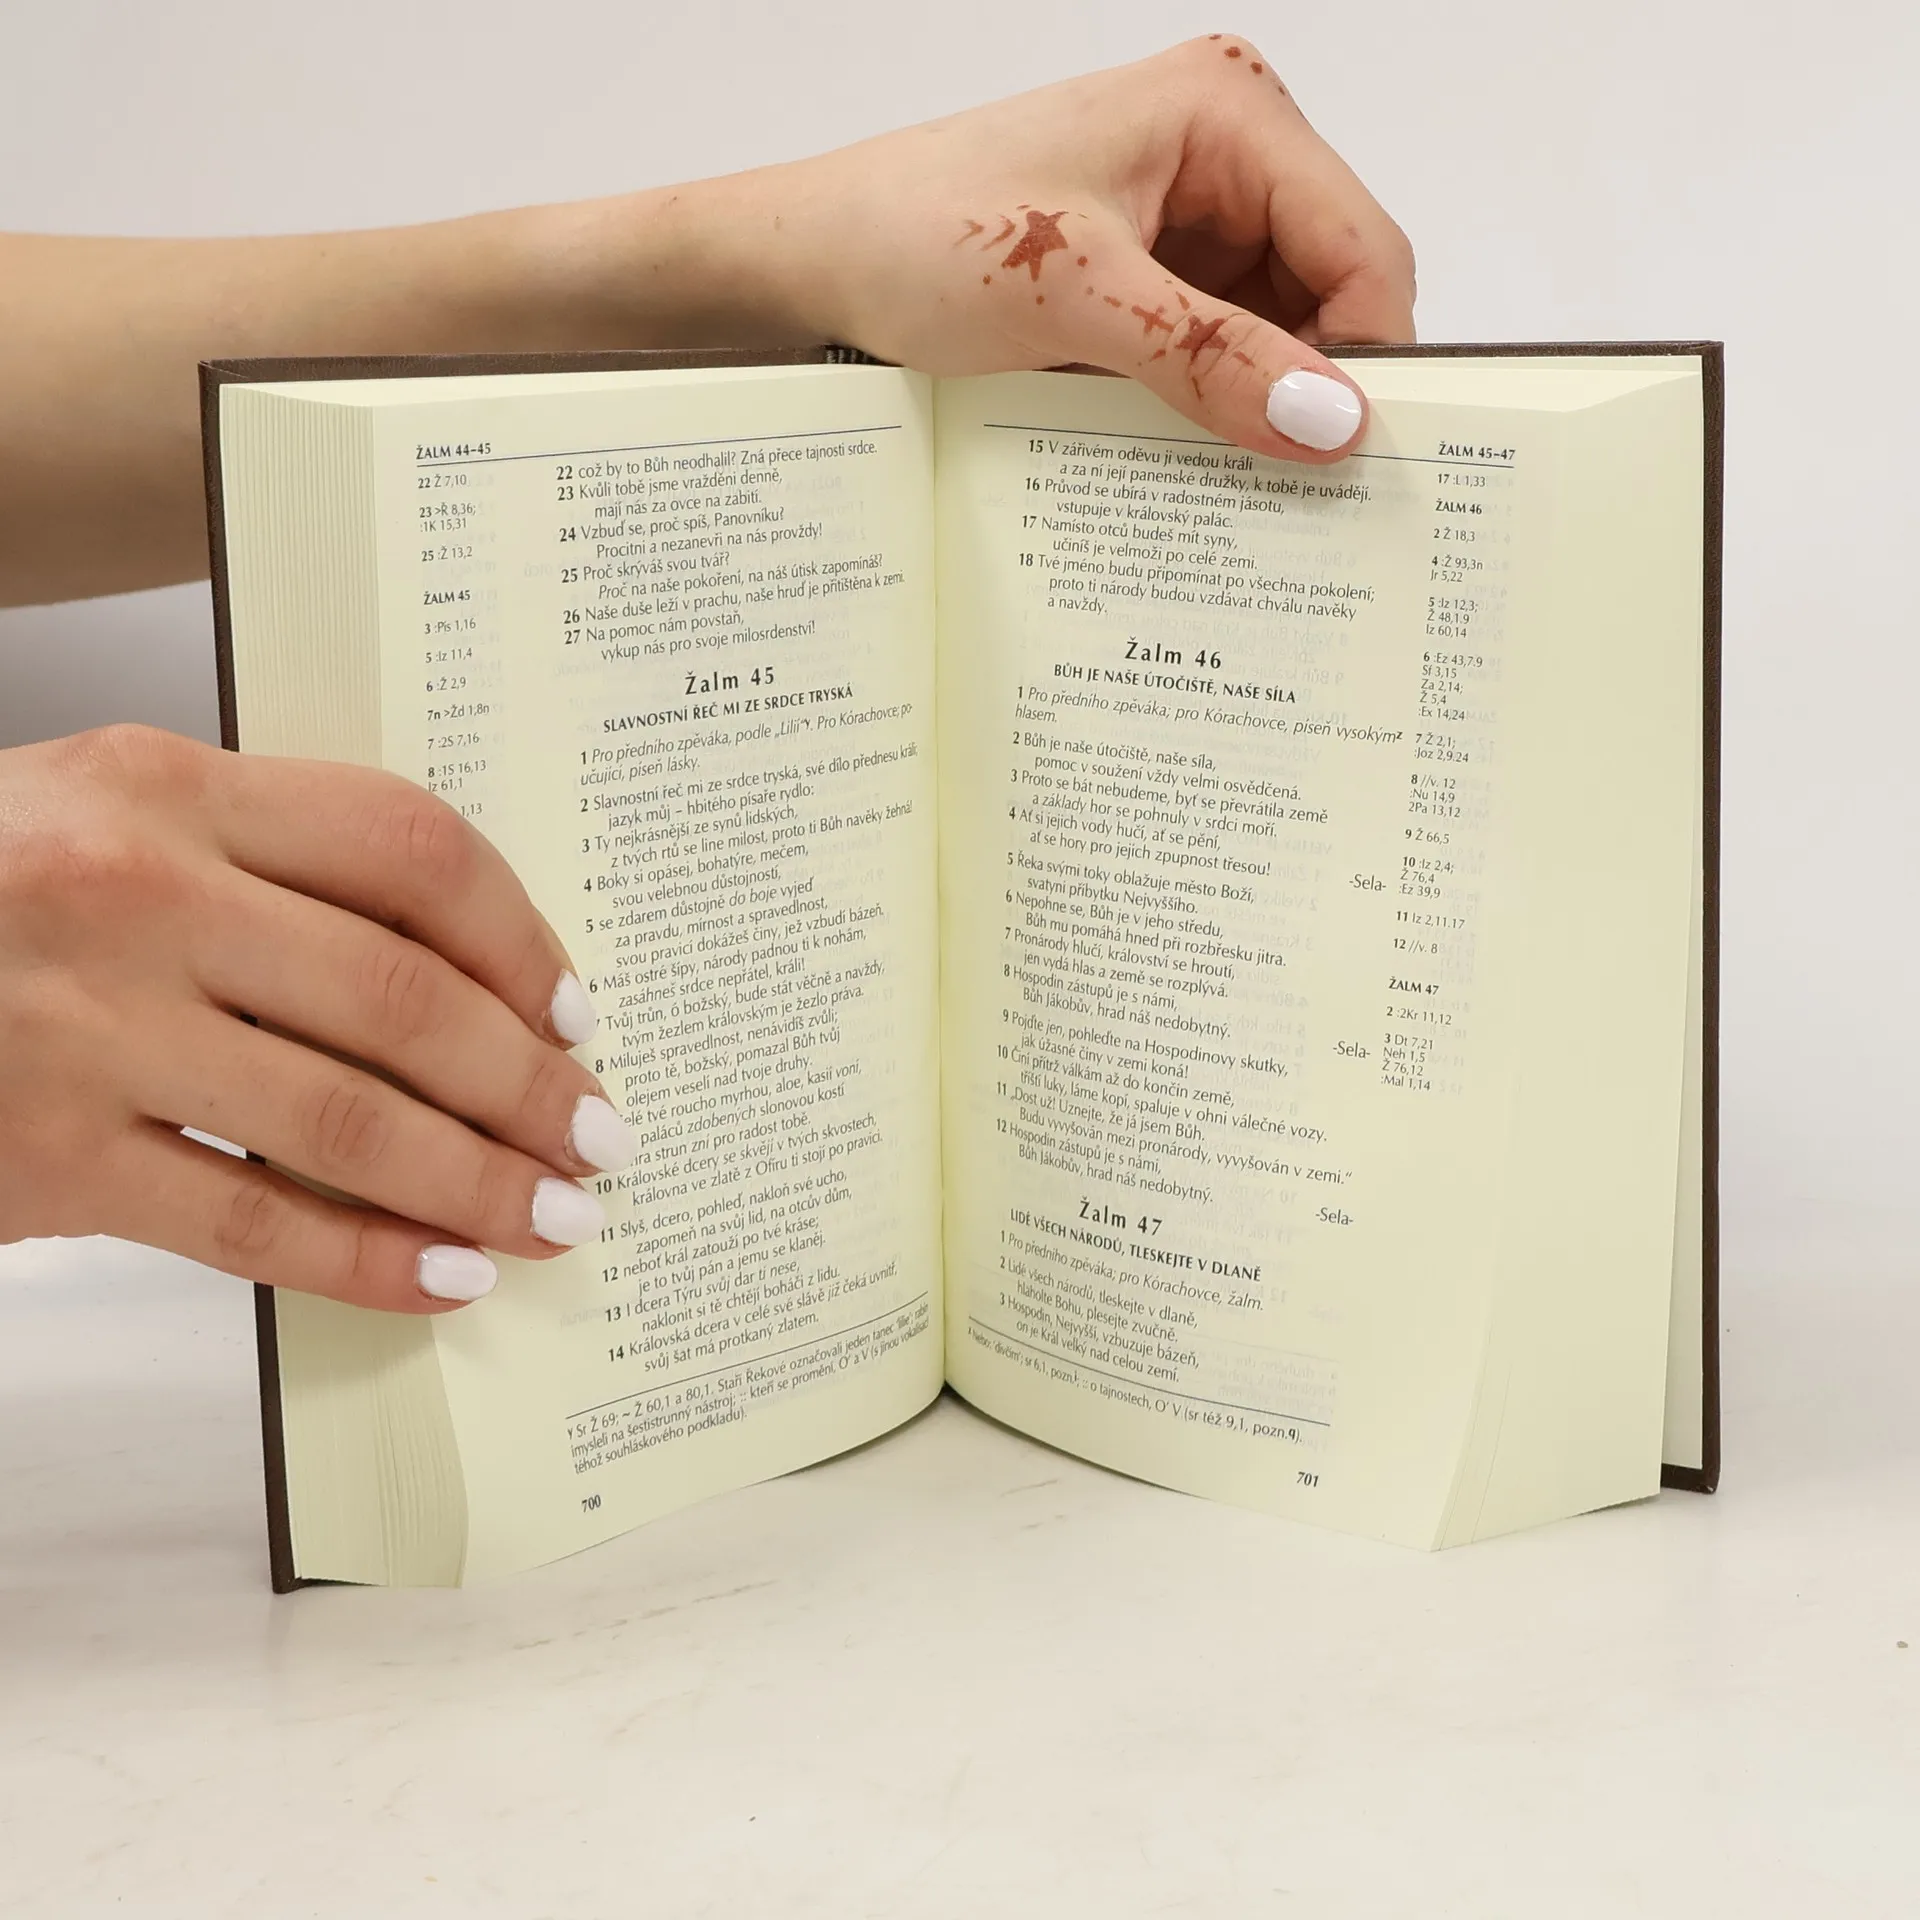 ŽALM 44–45
22 Ž 7,10
23 >Ř 8,36;
:1K 15,31
25 :Ž 13,2
ŽALM 45
3 :Pís 1,16
5 :Iz 11,4
6 :Ž 2,9
7n >Žd 1,8n
7 :2S 7,16
8 :1S 16,13
Iz 61,1
1,13
22 což by to Bůh neodhalil? Zná přece tajnosti srdce.
23 Kvůli tobě jsme vražděni denně,
mají nás za ovce na zabití.
24 Vzbuď se, proč spíš, Panovníku?
Procitni a nezanevři na nás provždy!
25 Proč skrýváš svou tvář?
Proč na naše pokoření, na náš útisk zapomínáš?
26 Naše duše leží v prachu, naše hruď je přitištěna k zemi.
27 Na pomoc nám povstaň,
vykup nás pro svoje milosrdenství!
Žalm 45
SLAVNOSTNÍ ŘEČ MI ZE SRDCE TRYSKÁ
1 Pro předního zpěváka, podle „Lilií“y. Pro Kórachovce; po-
učující, píseň lásky.
2 Slavnostní řeč mi ze srdce tryská, své dílo přednesu králi;
jazyk můj – hbitého písaře rydlo:
3 Ty nejkrásnější ze synů lidských,
z tvých rtů se line milost, proto ti Bůh navěky žehná!
4 Boky si opásej, bohatýre, mečem,
svou velebnou důstojností,
5 se zdarem důstojně do boje vyjeď
za pravdu, mírnost a spravedlnost,
svou pravicí dokážeš činy, jež vzbudí bázeň.
6 Máš ostré šípy, národy padnou ti k nohám,
zasáhneš srdce nepřátel, králi!
7 Tvůj trůn, ó božský, bude stát věčně a navždy,
tvým žezlem královským je žezlo práva.
8 Miluješ spravedlnost, nenávidíš zvůli;
proto tě, božský, pomazal Bůh tvůj
olejem veselí nad tvoje druhy.
tvé roucho myrhou, aloe, kasií voní,
paláců zdobených slonovou kostí
strun zní pro radost tobě.
10 Královské dcery se skvějí v tvých skvostech,
královna ve zlatě z Ofíru ti stojí po pravici.
11 Slyš, dcero, pohleď, nakloň své ucho,
zapomeň na svůj lid, na otcův dům,
12 neboť král zatouží po tvé kráse;
je to tvůj pán a jemu se klaněj.
13 I dcera Týru svůj dar ti nese,
naklonit si tě chtějí boháči z lidu.
14 Královská dcera v celé své slávě již čeká uvnitř,
svůj šat má protkaný zlatem.
y Sr Ž 69; ~ Ž 60,1 a 80,1. Staří Řekové označovali jeden tanec ‘lilie’; rabín
imysleli na šestistrunný nástroj; :: kteří se promění, O’ a V (s jinou vokalisací
téhož souhláskového podkladu).
700
ŽALM 45–47
15 V zářivém oděvu ji vedou králi
a za ní její panenské družky, k tobě je uvádějí.
16 Průvod se ubírá v radostném jásotu,
vstupuje v královský palác.
17 Namísto otců budeš mít syny,
učiníš je velmoži po celé zemi.
18 Tvé jméno budu připomínat po všechna pokolení;
proto ti národy budou vzdávat chválu navěky
a navždy.
Žalm 46
BŮH JE NAŠE ÚTOČIŠTĚ, NAŠE SÍLA
1 Pro předního zpěváka; pro Kórachovce, píseň vysokýmz
hlasem.
2 Bůh je naše útočiště, naše síla,
pomoc v soužení vždy velmi osvědčená.
3 Proto se bát nebudeme, byť se převrátila země
a základy hor se pohnuly v srdci moří.
4 Ať si jejich vody hučí, ať se pění,
ať se hory pro jejich zpupnost třesou! -Sela-
5 Řeka svými toky oblažuje město Boží,
svatyni příbytku Nejvyššího.
6 Nepohne se, Bůh je v jeho středu,
Bůh mu pomáhá hned při rozbřesku jitra.
7 Pronárody hlučí, království se hroutí,
jen vydá hlas a země se rozplývá.
8 Hospodin zástupů je s námi,
Bůh Jákobův, hrad náš nedobytný. -Sela-
9 Pojďte jen, pohleďte na Hospodinovy skutky,
jak úžasné činy v zemi koná!
10 Činí přítrž válkám až do končin země,
tříští luky, láme kopí, spaluje v ohni válečné vozy.
11 „Dost už! Uznejte, že já jsem Bůh.
Budu vyvyšován mezi pronárody, vyvyšován v zemi.“
12 Hospodin zástupů je s námi,
Bůh Jákobův, hrad náš nedobytný. -Sela-
Žalm 47
LIDÉ VŠECH NÁRODŮ, TLESKEJTE V DLANĚ
1 Pro předního zpěváka; pro Kórachovce, žalm.
2 Lidé všech národů, tleskejte v dlaně,
hlaholte Bohu, plesejte zvučně.
3 Hospodin, Nejvyšší, vzbuzuje bázeň,
on je Král velký nad celou zemí.
z Nebo: ‘dívčím’; sr 6,1, pozn.j; :: o tajnostech, O’ V (sr též 9,1, pozn.q).
701
17 :L 1,33
ŽALM 46
2 Ž 18,3
4 :Ž 93,3n
Jr 5,22
5 :Iz 12,3;
Ž 48,1.9
Iz 60,14
6 :Ez 43,7.9
Sf 3,15
Za 2,14;
Ž 5,4
:Ex 14,24
7 Ž 2,1;
:Joz 2,9.24
8 //v. 12
:Nu 14,9
2Pa 13,12
9 Ž 66,5
10 :Iz 2,4;
Ž 76,4
:Ez 39,9
11 Iz 2,11.17
12 //v. 8
ŽALM 47
2 :2Kr 11,12
3 Dt 7,21
Neh 1,5
Ž 76,12
:Mal 1,14